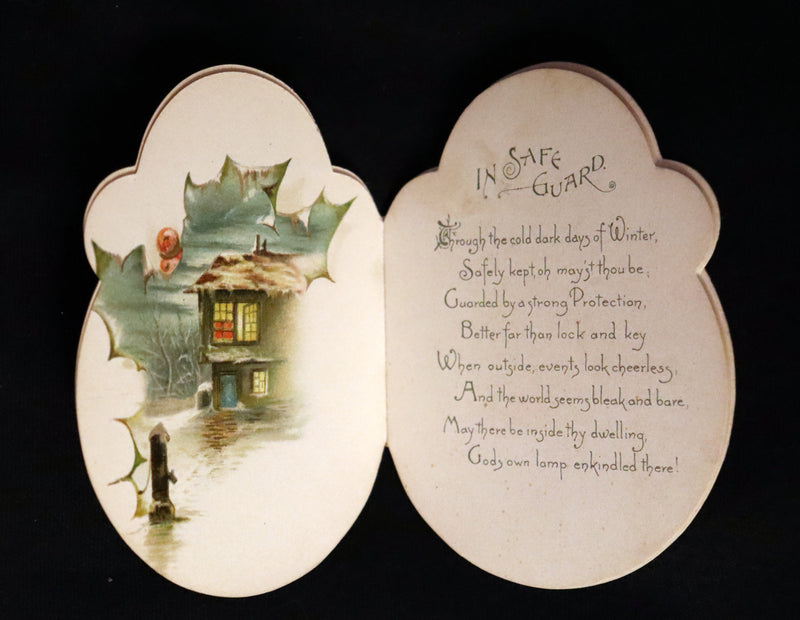 IN SAFE
GUARD.
Through the cold dark days of Winter,
Safely kept, oh may'st thou be;
Guarded by a strong Protection,
Better far than lock and key
When outside, events look cheerless,
And the world seems bleak and bare,
May there be inside thy dwelling,
Gods own lamp enkindled there!